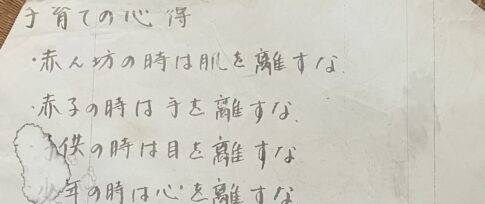 子育ての心得
・赤ん坊の時は肌を離すな.
・赤子の時は手を離すな.
子供の時は目を離すな
少年の時は心を離すな